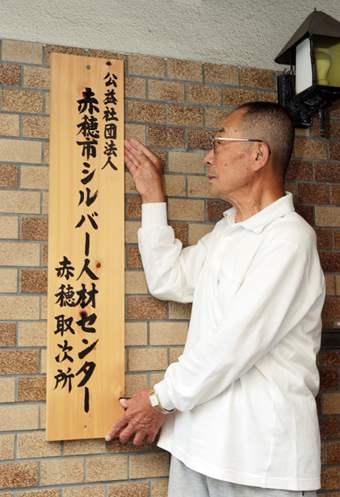 公益社団法人
赤穂市シルバー人材センター
赤穂取次所